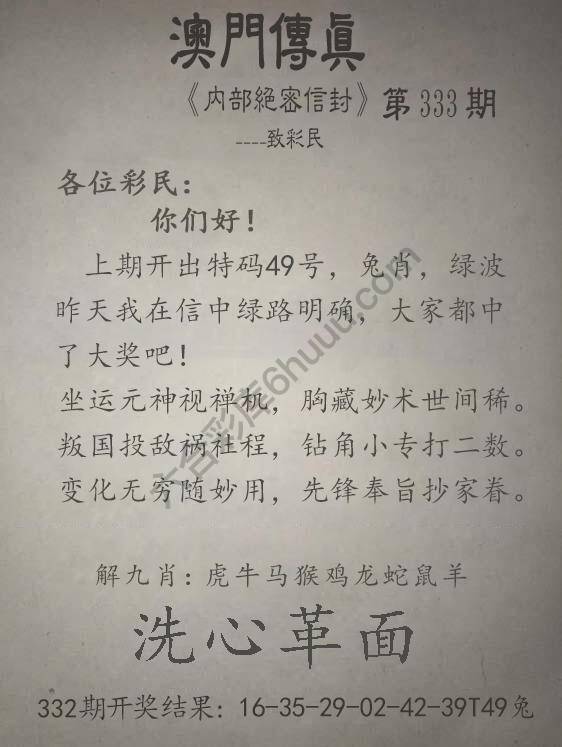 澳門傳眞
《内部絕密信封》第 333 期
----致彩民
各位彩民：
你们好！
上期开出特码49号，兔肖，绿波
昨天我在信中绿路明确，大家都中
了大奖吧！
坐运元神视禅机，胸藏妙术世间稀。
叛国投敌祸社程，钻角小专打二数。
变化无穷随妙用，先锋奉旨抄家眷。
六合彩库6huuu.com
解九肖：虎牛马猴鸡龙蛇鼠羊
洗心革面
332期开奖结果：16-35-29-02-42-39T49兔